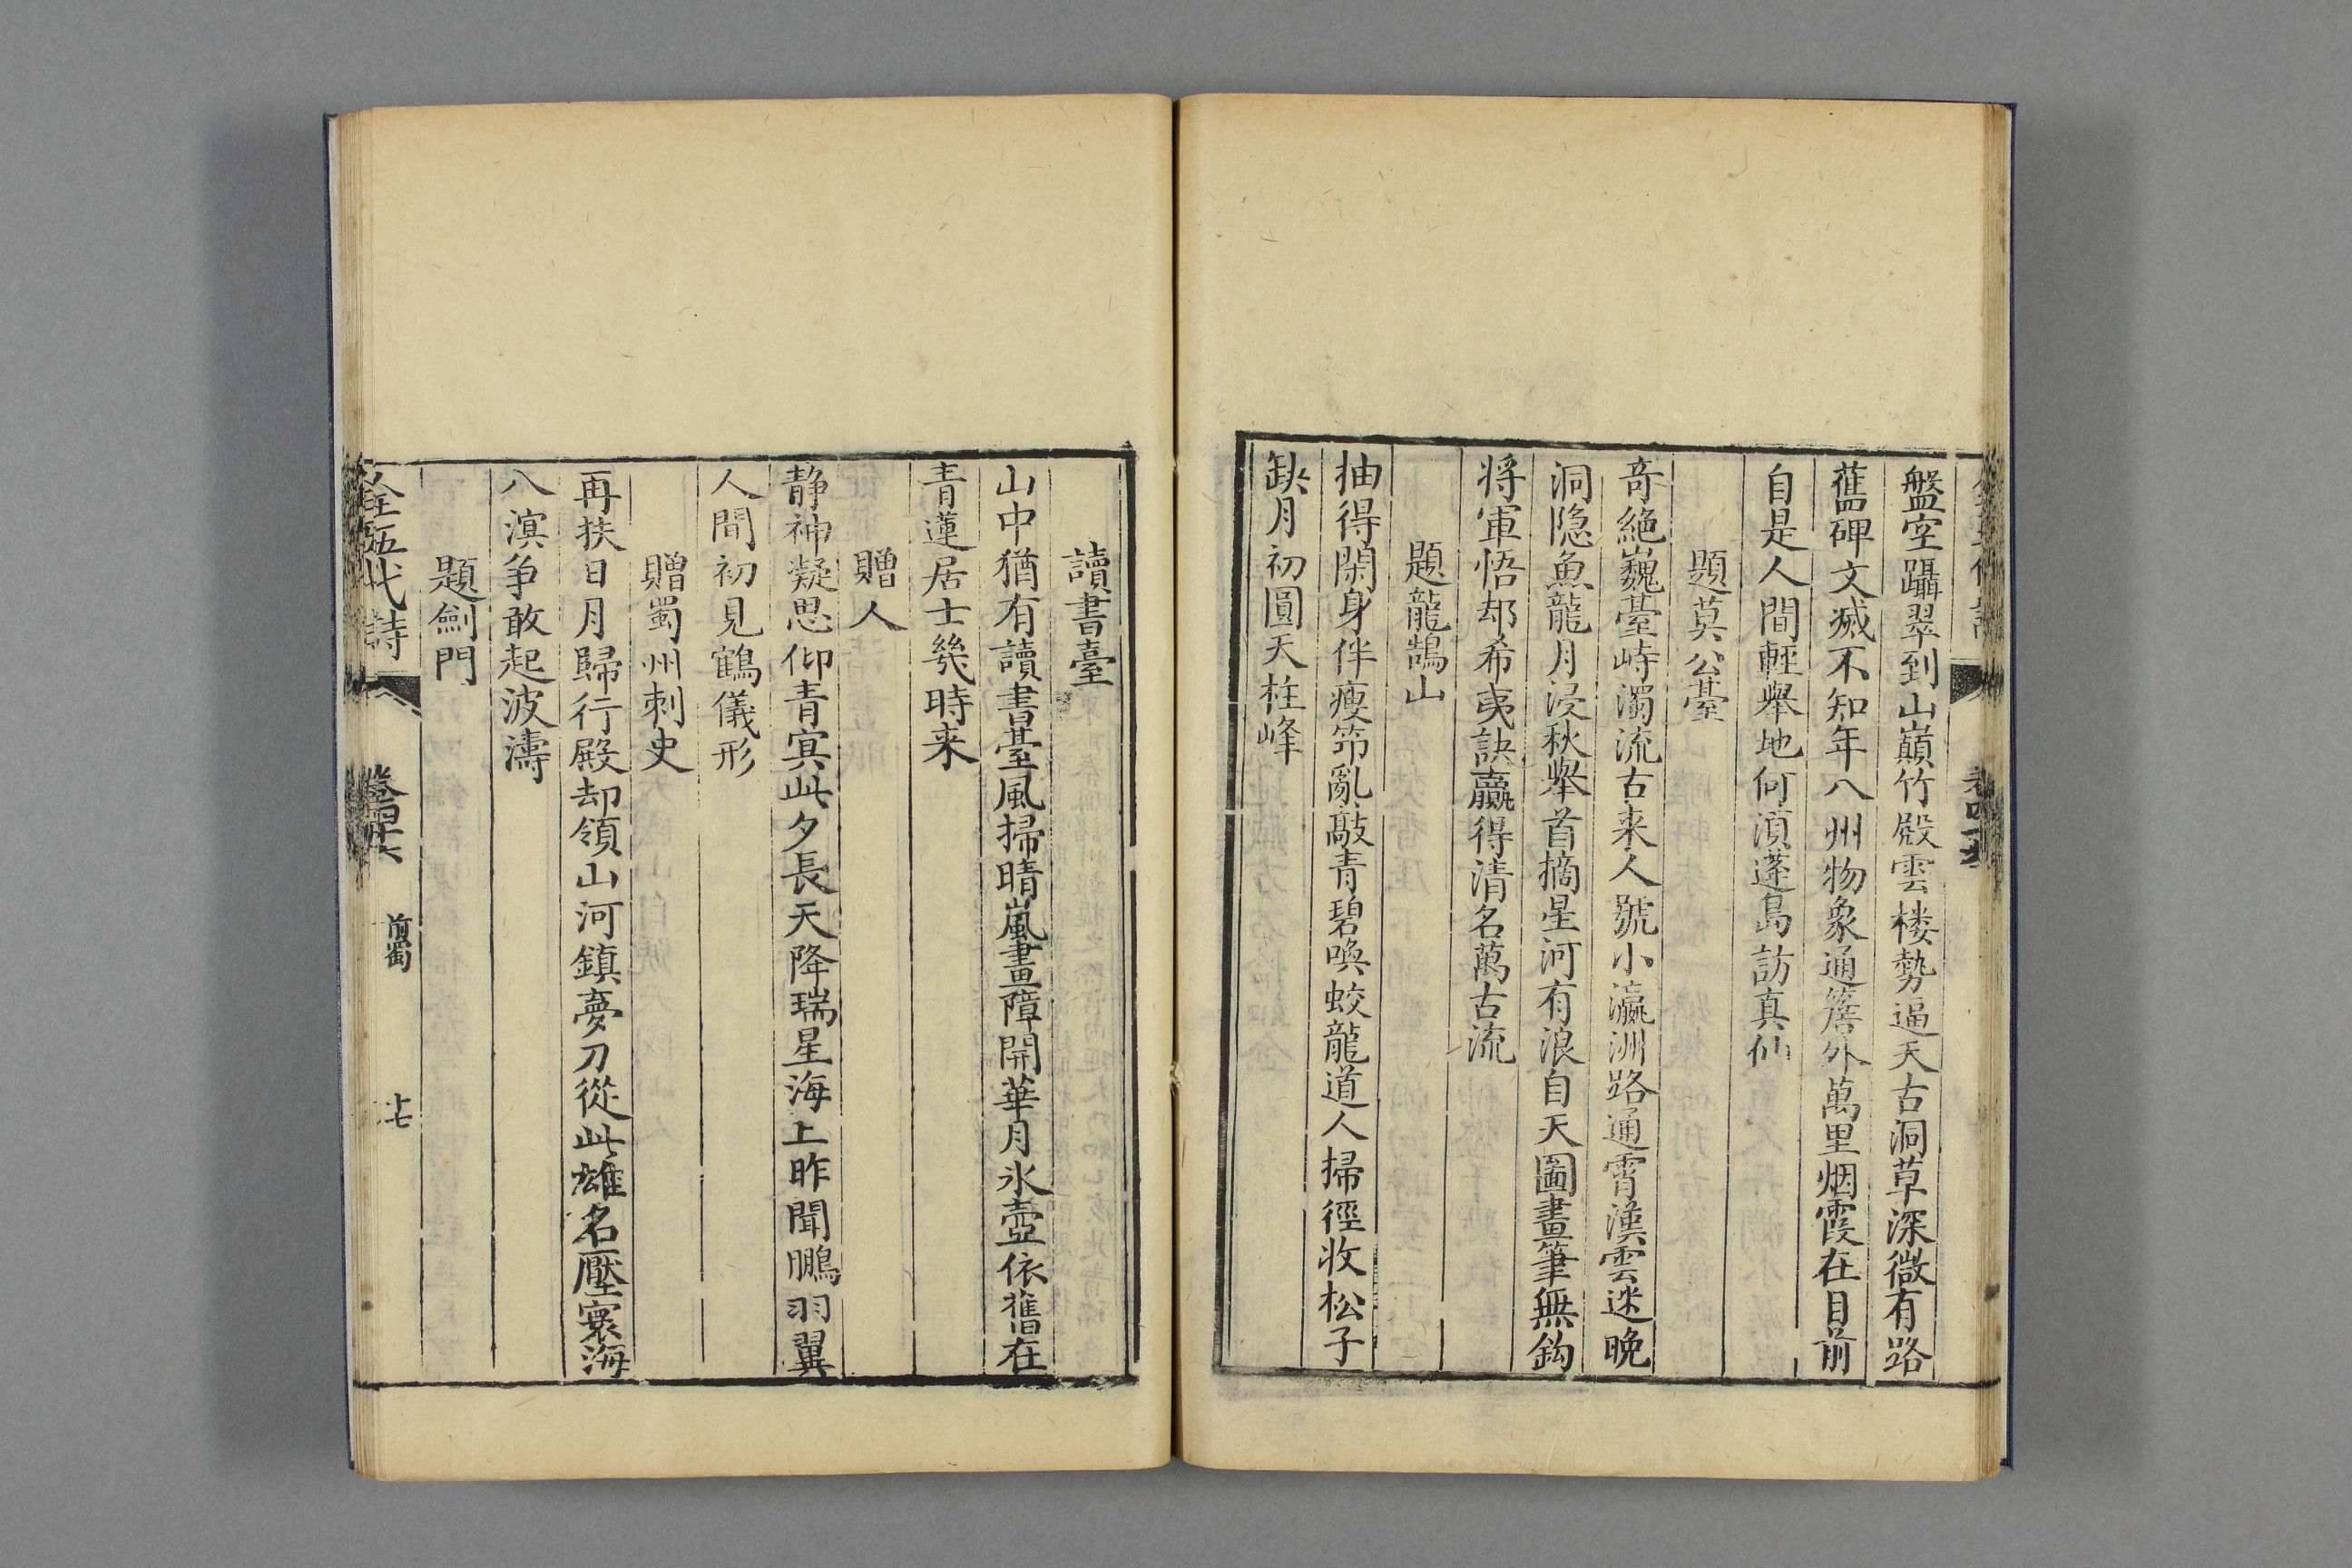 盤空躡翠到山巔竹殿雲楼勢逼天古洞草深微有路
舊碑文滅不知年八州物象通簷外萬里烟霞在目前
自是人間輕舉地何湏蓬島訪真仙
題莫公臺
奇絶巍臺峙濁流古来人號小瀛洲路通霄漢雲迷晚
洞隐魚龍月浸秋舉首摘星河有浪自天圖畫筆無鈎
将軍悟却希夷訣贏得清名萬古流
題龍鵠山
抽得閑身伴瘦筇亂敲青碧喚蛟龍道人掃徑收松子
缺月初圓天柱峰
讀書臺
山中猶有讀書臺風掃晴嵐畫障開華月氷壺依舊在
青蓮居士幾時来
贈人
静神凝思仰青冥此夕長天降瑞星海上昨聞鵬羽翼
人間初見鶴儀形
贈蜀州刺史
再扶日月歸行殿却領山河鎮夢刀從此雄名壓寰海
八溟争敢起波濤
題劍門
全五代詩
前蜀
十七